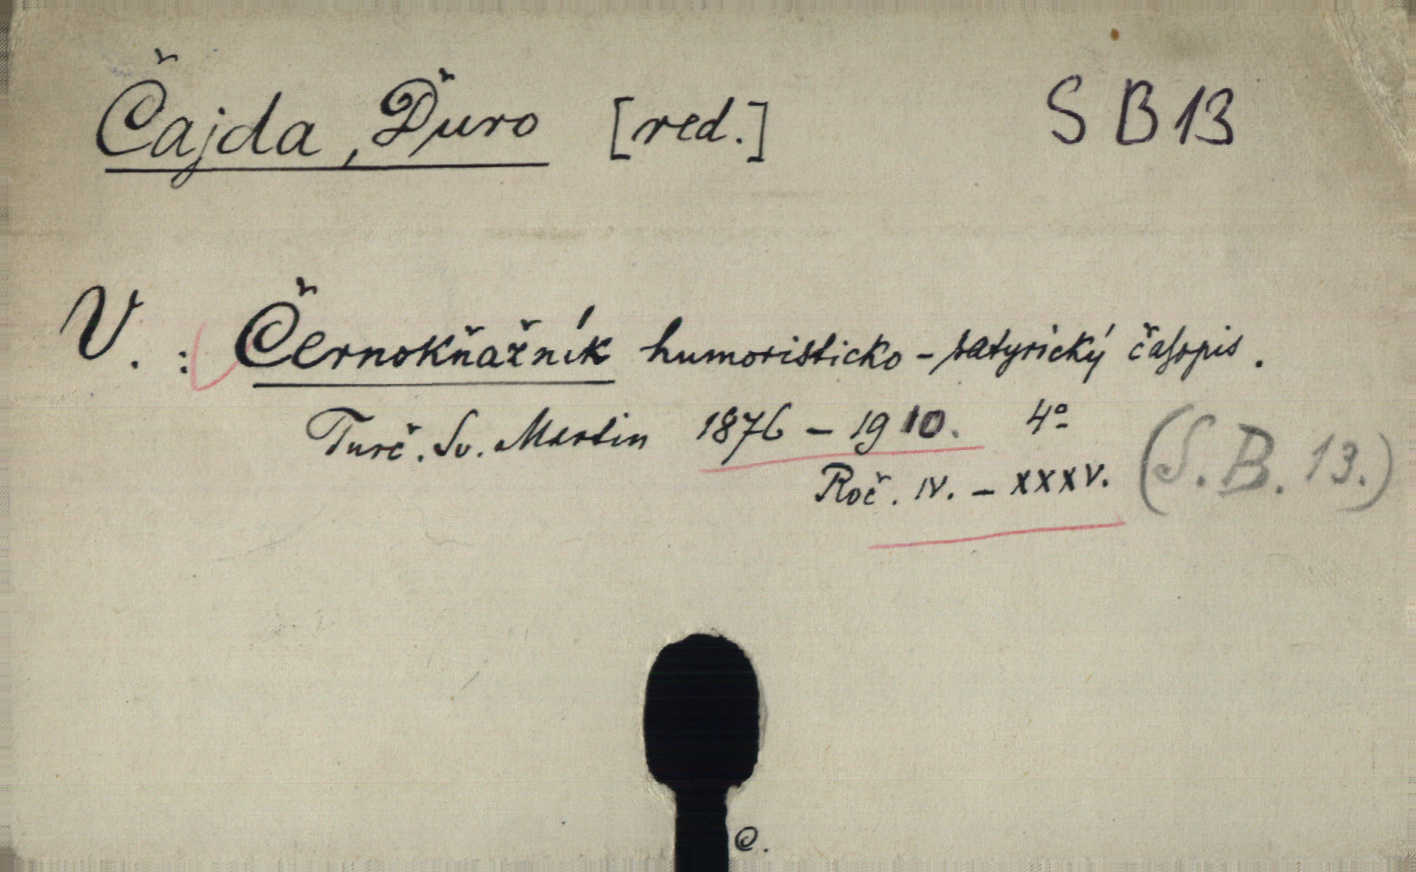 Čajda, Ďuro [red.] S B 13
V. : Černokňažník humoristicko-satyrický časopis.
Turč. Sv. Martin 1876 – 1910. 4º
Roč. IV. – XXXV. (S. B. 13.)
C.